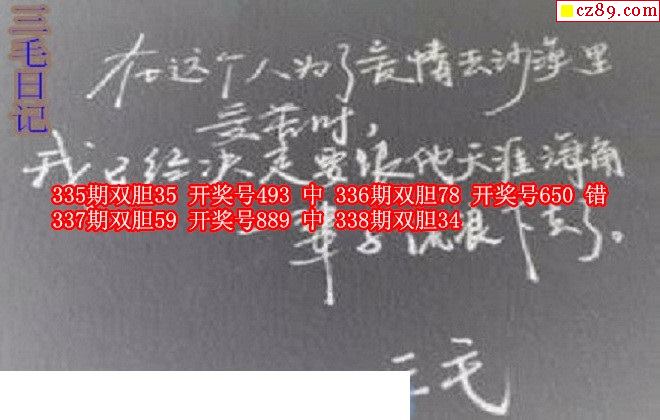 cz89.com
三毛日记
在这个人为了爱情去沙漠里
受苦时，
我已经决定要跟他天涯海角
335期双胆35 开奖号493 中 336期双胆78 开奖号650 错
337期双胆59 开奖号889 中 338期双胆34
一辈子流浪下去了。
三毛